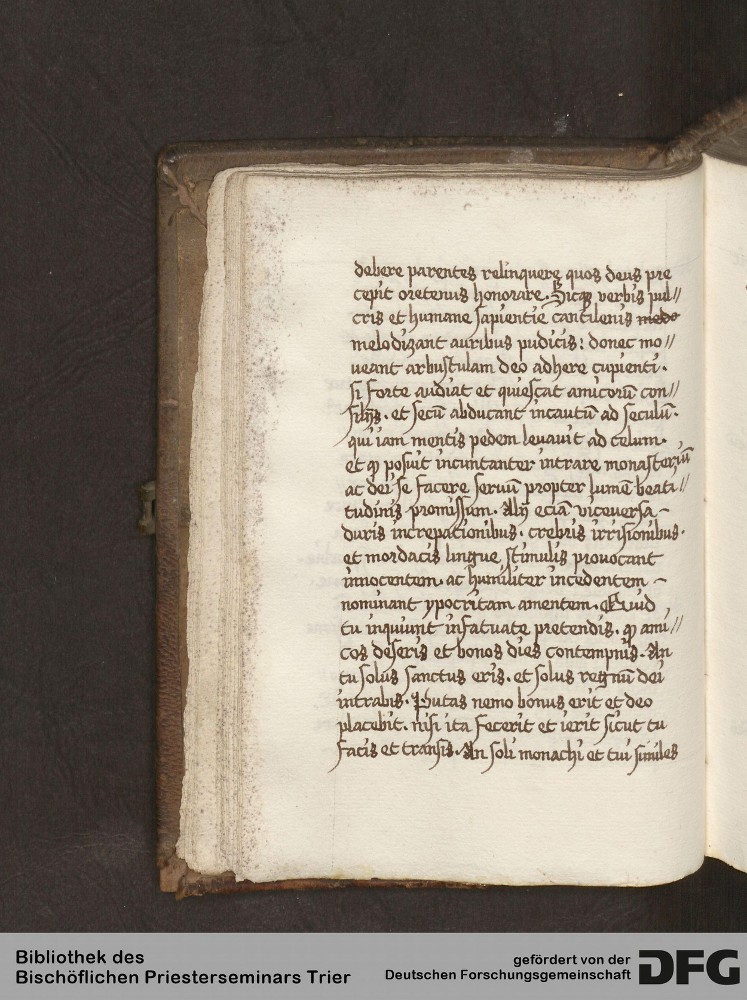 debere parentes relinquere quos deus pre
cepit oretenus honorare. Sicq; verbis pul//
cris et humane sapientie cantilenis medo
melodizant auribus pudicis: donec mo//
ueant arbustulam deo adhere cupienti.
si forte audiat et quiescat amicorū con//
silijs. et secū abducant incautū ad seculū.
qui iam mentis pedem leuauit ad celum.
et ꝙ posuit incuntanter intrare monasteriū
ac dei se facere seruū propter lumē beati//
tudinis promissum. Alij eciā viceversa ~
duris increpationibus. crebris irrisionibus.
et mordacis lingue stimulis prouocant
innocentem. ac humiliter incedentem ~
nominant ypocritam amentem. Quid
tu inquiunt infatuate pretendis. ꝙ ami//
cos deseris et bonos dies contempnis. An
tu solus sanctus eris. et solus regnū dei
intrabis. Putas nemo bonus erit et deo
placebit. nisi ita fecerit et ierit sicut tu
facis et transis. An soli monachi et tui similes
Bibliothek des
Bischöflichen Priesterseminars Trier
gefördert von der
Deutschen Forschungsgemeinschaft
DFG